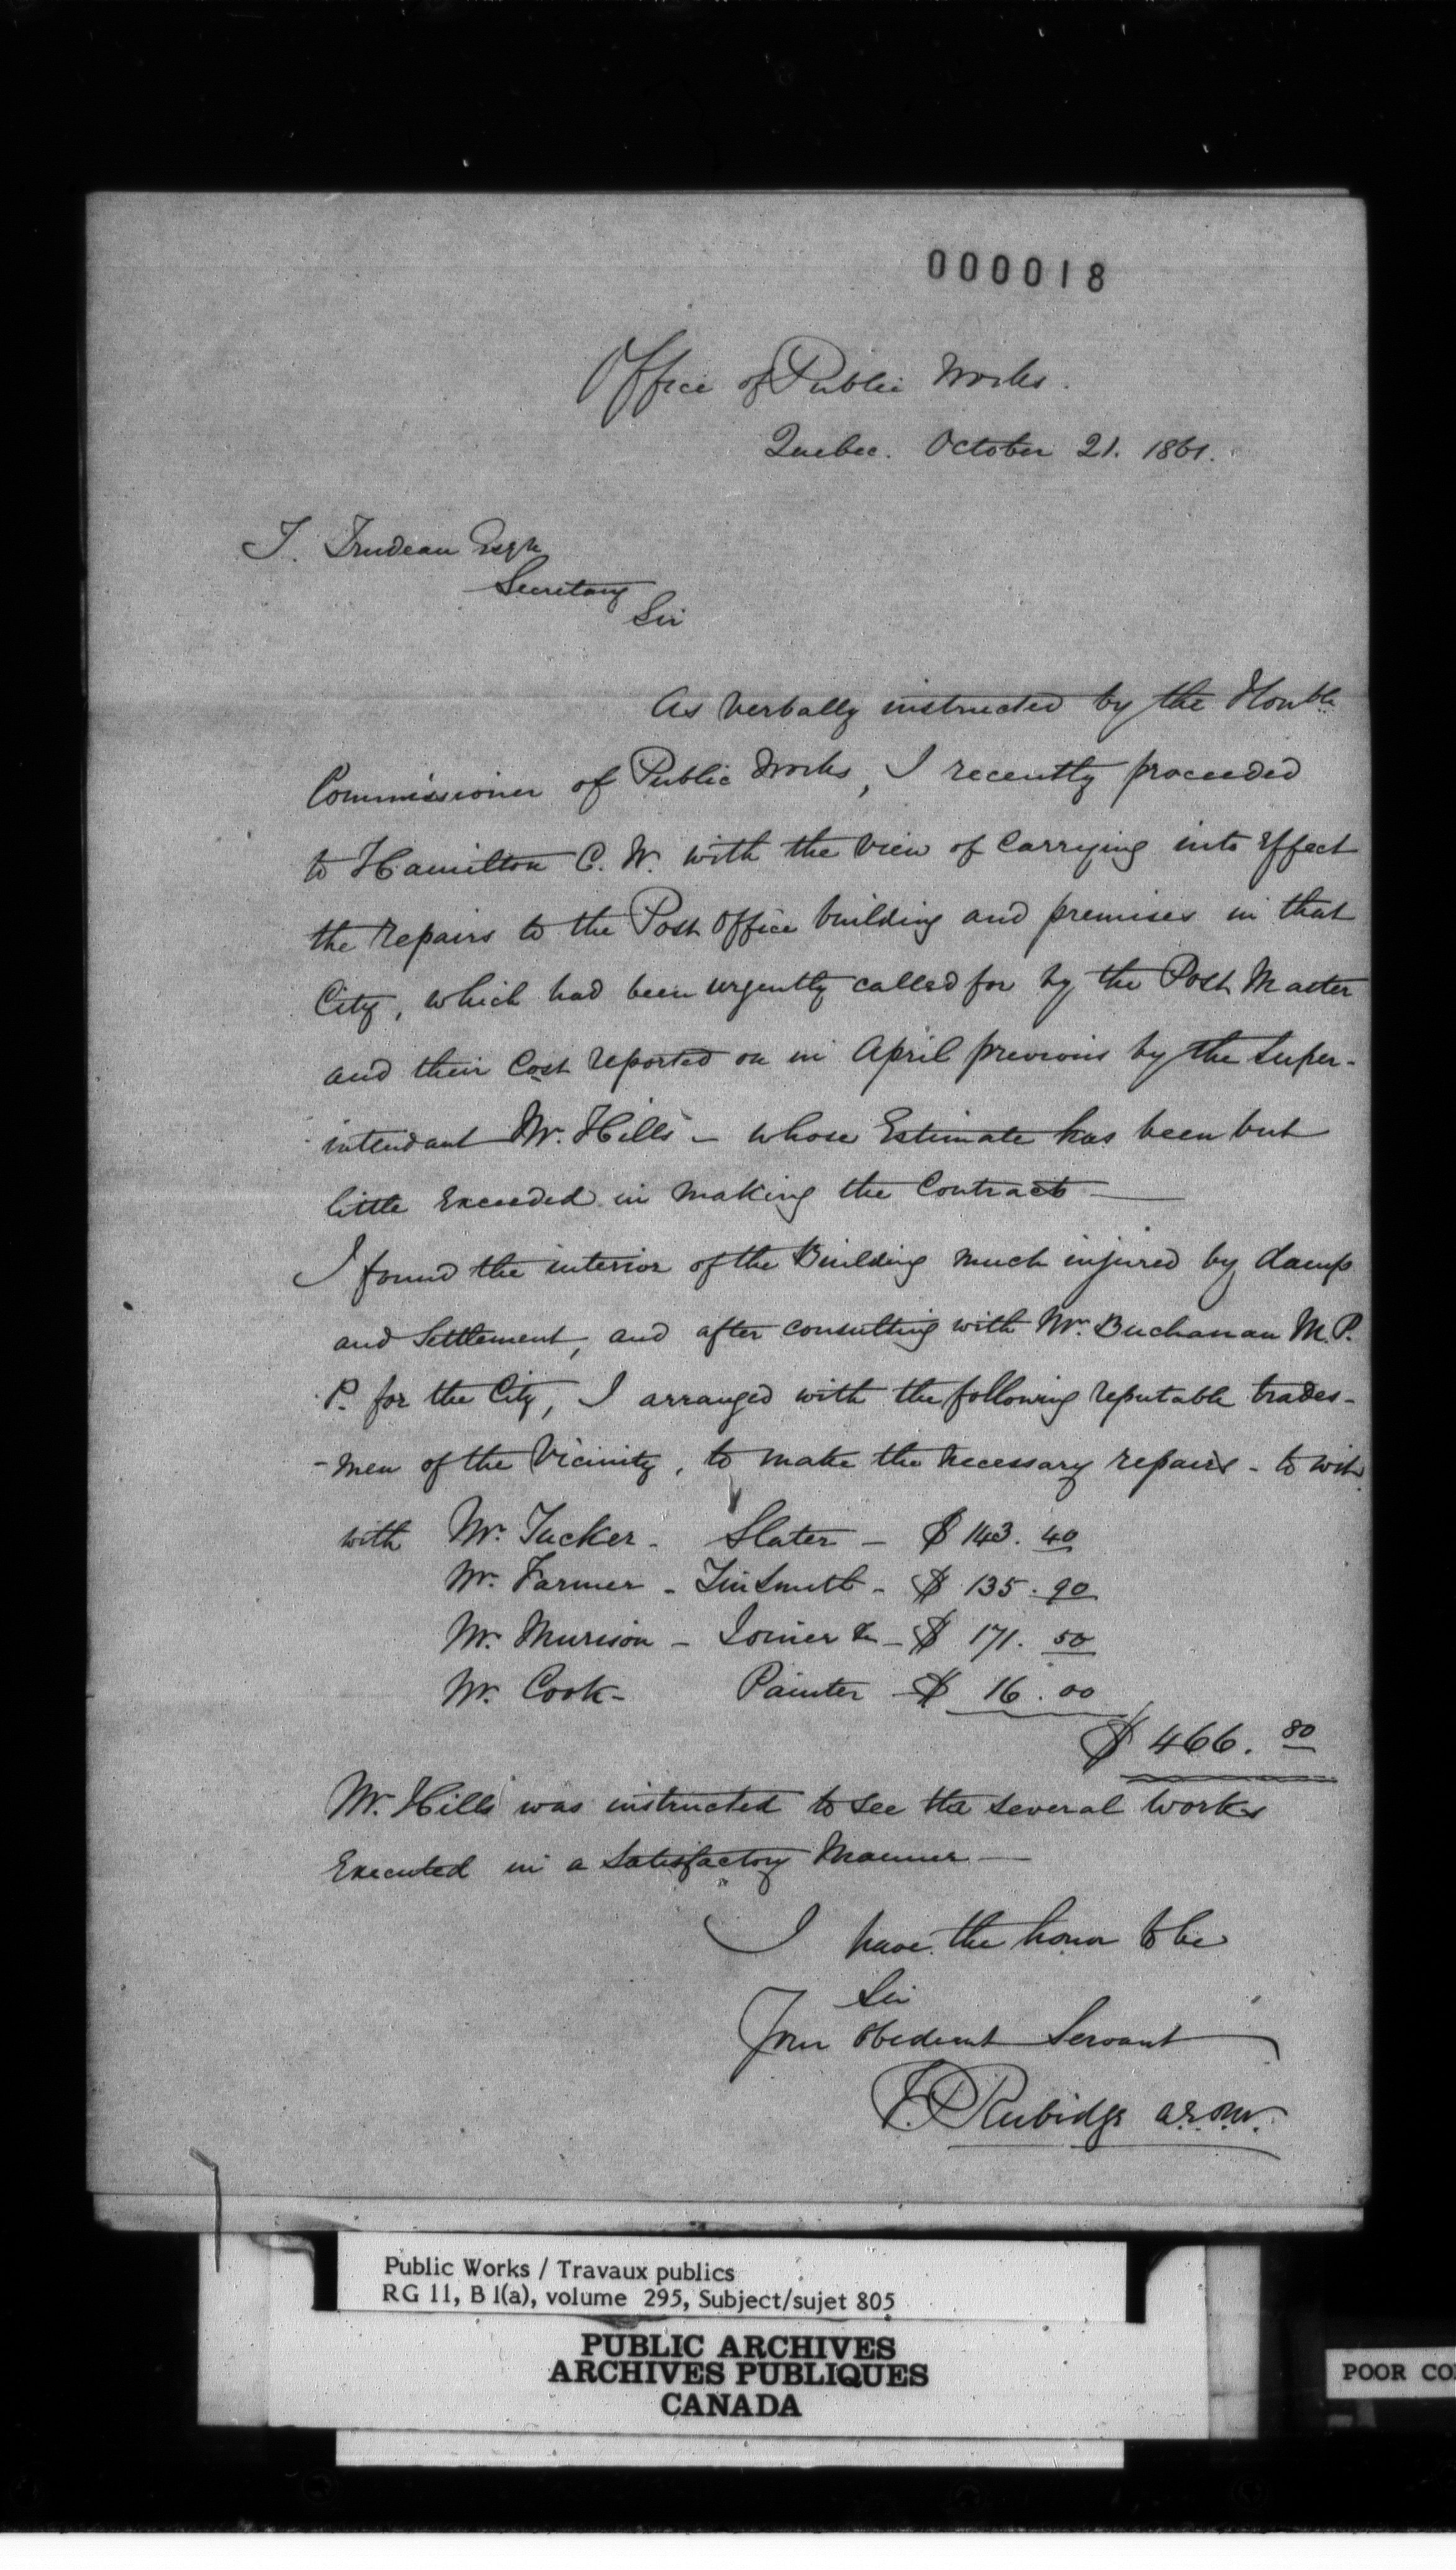 000018
Office of Public Works.
Quebec. October 21. 1861.
T. Trudeau Esqr
Secretary
Sir
As verbally instructed by the Honble
Commissioner of Public Works, I recently proceeded
to Hamilton C. W. with the view of Carrying into Effect
the repairs to the Post Office building and premises in that
City, which had been urgently called for by the Post Master
and their Cost reported on in April previous by the Super-
intendant Mr. Hills - whose Estimate has been but
little Exceeded in making the Contracts —
I found the interior of the Building much injured by damp
and Settlement, and after consulting with Mr. Buchanan M.P.
P. for the City, I arranged with the following reputable trades-
-men of the Vicinity, to make the necessary repairs - to wit
with Mr. Tucker - Slater - $ 143. 40
Mr. Farmer - Tinsmith - $ 135. 90
Mr. Murison - Joiner &c - $ 171. 50
Mr. Cook - Painter - $ 16. 00
$ 466. 80
Mr. Hills was instructed to see the several works
Executed in a Satisfactory Manner —
I have the honor to be
Sir
Your Obedient Servant
F.P. Rubidge
Public Works / Travaux publics
RG 11, B 1(a), volume 295, Subject/sujet 805
PUBLIC ARCHIVES
ARCHIVES PUBLIQUES
CANADA
POOR CO